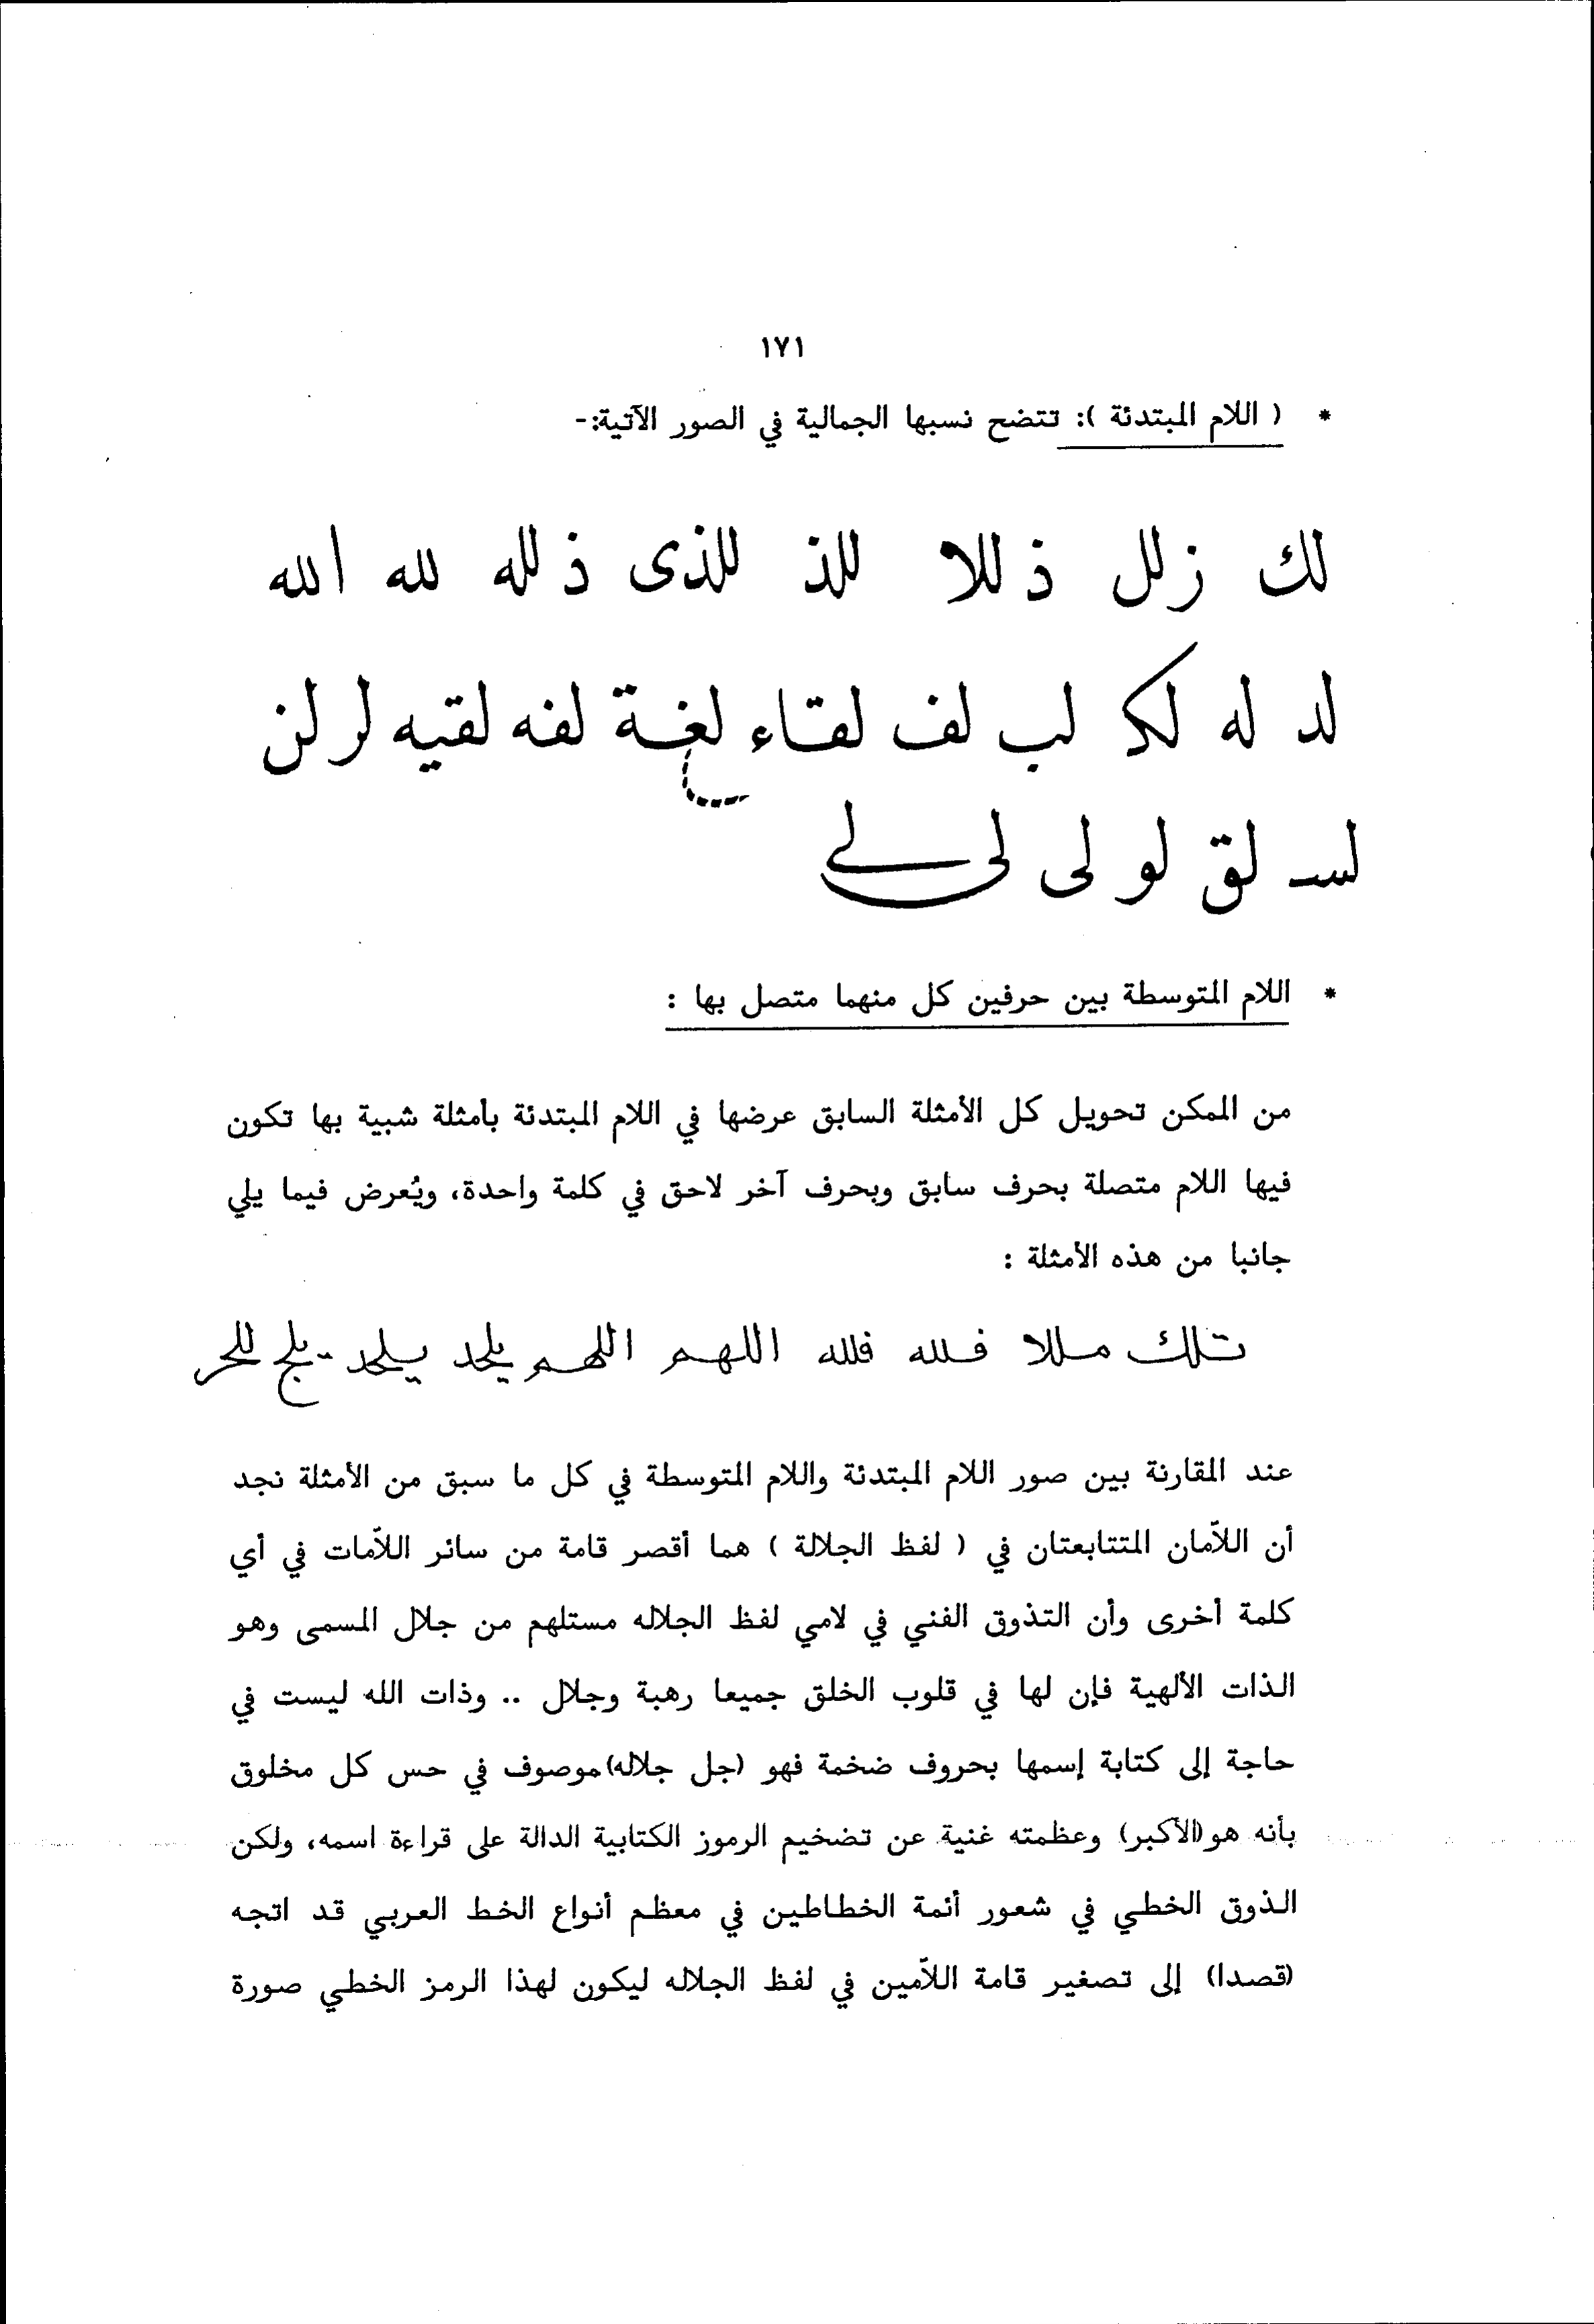 ١٧١
* ( اللام المبتدئة ): تتضح نسبها الجمالية في الصور الآتية:-
لك زلل ذللا للذ للذى ذلله لله الله
لد له لكد لب لف لقاء لغة لفه لقيه لر لن
لسـ لق لو لى لى لے
* اللام المتوسطة بين حرفين كل منهما متصل بها :
من الممكن تحويل كل الأمثلة السابق عرضها في اللام المبتدئة بأمثلة شبية بها تكون
فيها اللام متصلة بحرف سابق وبحرف آخر لاحق في كلمة واحدة، ويُعرض فيما يلي
جانبا من هذه الأمثلة :
تلك مللا فلله فلله اللهم اللهم يلحد يلحد - يلج للحر
عند المقارنة بين صور اللام المبتدئة واللام المتوسطة في كل ما سبق من الأمثلة نجد
أن اللاّمان المتتابعتان في ( لفظ الجلالة ) هما أقصر قامة من سائر اللاّمات في أي
كلمة أخرى وأن التذوق الفني في لامي لفظ الجلاله مستلهم من جلال المسمى وهو
الذات الألهية فإن لها في قلوب الخلق جميعا رهبة وجلال .. وذات الله ليست في
حاجة إلى كتابة إسمها بحروف ضخمة فهو (جل جلاله) موصوف في حس كل مخلوق
بأنه هو (الأكبر) وعظمته غنية عن تضخيم الرموز الكتابية الدالة على قراءة اسمه، ولكن
الذوق الخطي في شعور أئمة الخطاطين في معظم أنواع الخط العربي قد اتجه
(قصدا) إلى تصغير قامة اللاّمين في لفظ الجلاله ليكون لهذا الرمز الخطي صورة